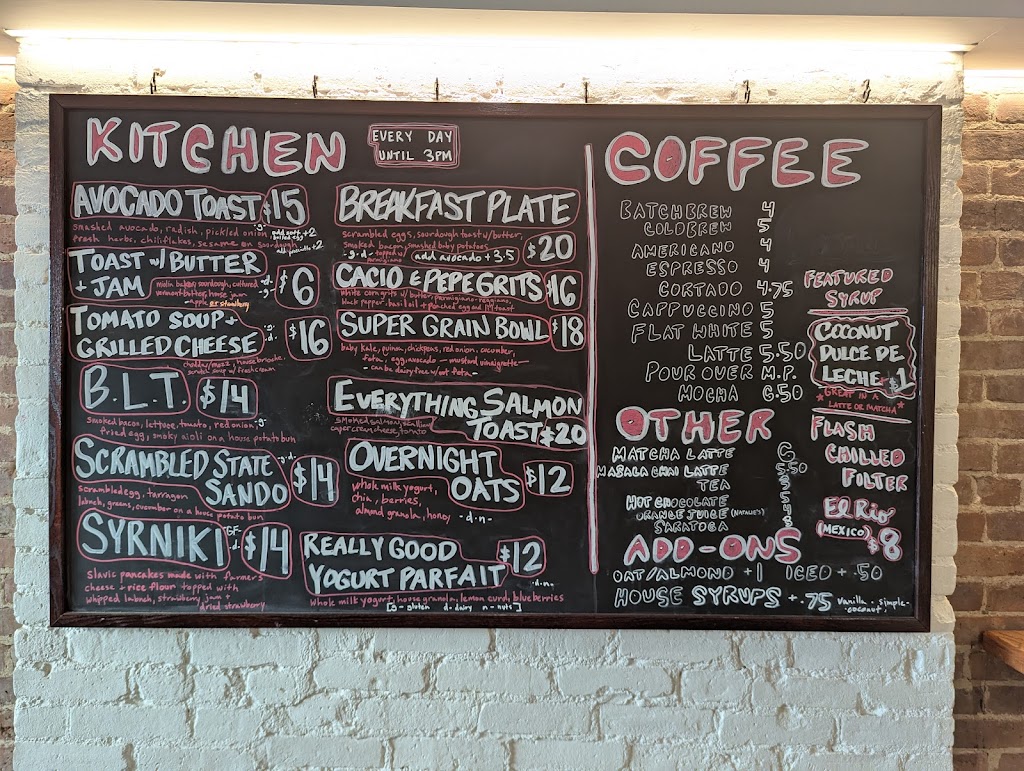 KITCHEN
EVERY DAY
UNTIL 3PM
AVOCADO TOAST $15
smashed avocado, radish, pickled onion -g-
fresh herbs, chiliflakes, sesame on sourdough
add soft boiled egg +2
TOAST w/ BUTTER
+ JAM $6
miolin bakes sourdough, cultured
vermont butter, house jam
-apple or strawberry
TOMATO SOUP +
GRILLED CHEESE $16
-g-
-d-
cheddar/mozz, house brioche.
scratch soup w/ fresh cream
B.L.T. $14
smoked bacon, lettuce, tomato, red onion, -g-
fried egg, smoky aioli on a house potato bun
SCRAMBLED STATE
SANDO $14
-g-d-
scrambled egg, tarragon
labneh, greens, cucumber on a house potato bun
SYRNIKI $14
GF
-d-
slavic pancakes made with farmers
cheese + rice flour topped with
whipped labneh, strawberry jam +
dried strawberry
BREAKFAST PLATE
$20
scrambled eggs, sourdough toast w/butter,
smoked bacon, smashed baby potatoes
-g-d- topped w/ parmigiano
add avocado +3.5
CACIO E PEPE GRITS $16
white corn grits w/ butter, parmigiano-reggiano,
black pepper, basil oil + poached egg and toast
SUPER GRAIN BOWL $18
baby kale, quinoa, chickpeas, red onion, cucumber,
feta, egg, avocado - mustard vinaigrette -
- can be dairy free w/out feta -
EVERYTHING SALMON
TOAST $20
smoked salmon, scallion
caper cream cheese, tomato
OVERNIGHT
OATS $12
whole milk yogurt,
chia, berries,
almond granola, honey -d-n-
REALLY GOOD
YOGURT PARFAIT $12
-d-n-
whole milk yogurt, house granola, lemon curd, blueberries
[g - gluten d - dairy n - nuts]
COFFEE
BATCHBREW 4
COLDBREW 5
AMERICANO 4
ESPRESSO 4
CORTADO 4.75
CAPPUCCINO 5
FLAT WHITE 5
LATTE 5.50
POUR OVER M.P.
MOCHA 6.50
OTHER
MATCHA LATTE 6
MASALA CHAI LATTE 5.50
TEA
HOT CHOCOLATE
ORANGE JUICE (NATALIE'S)
SARATOGA
ADD-ONS
OAT/ALMOND +1 ICED + .50
HOUSE SYRUPS + .75 vanilla · simple ·
coconut
FEATURED
SYRUP
COCONUT
DULCE DE
LECHE $1
GREAT IN A
LATTE OR MATCHA
FLASH
CHILLED
FILTER
EL RIO
(MEXICO)
$8